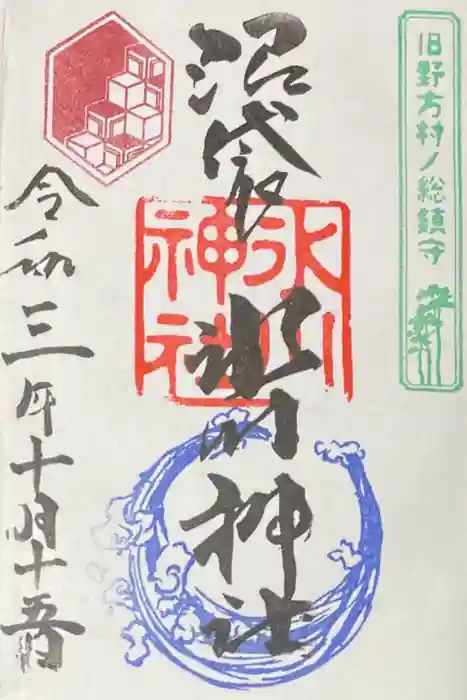 旧野方村ノ総鎮守
沼袋
氷川神社
氷川
神社
令和三年十月十五日